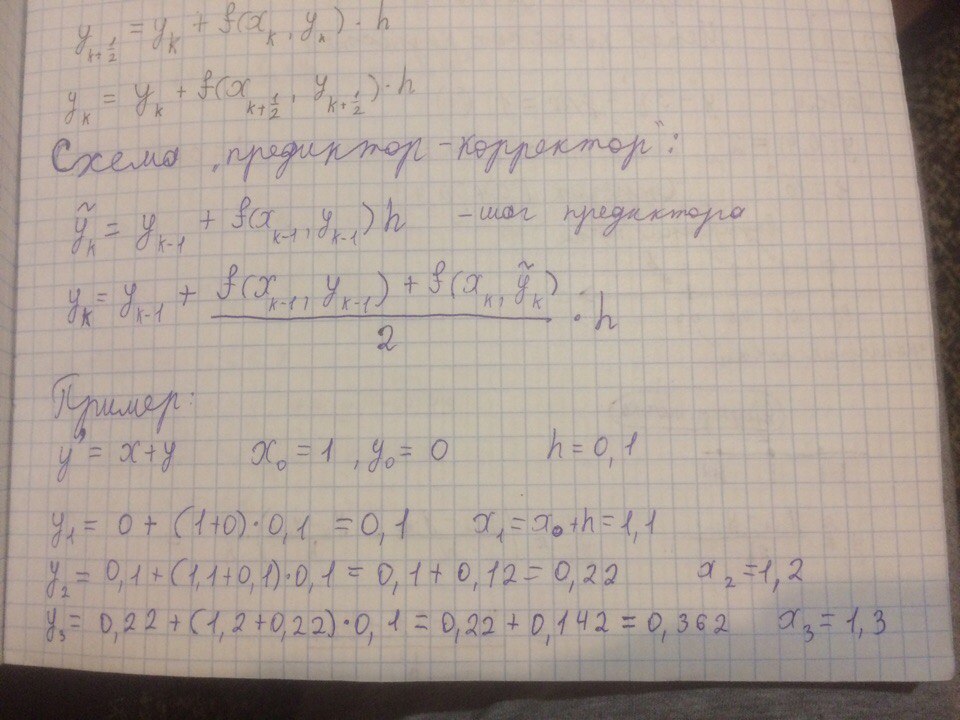 y_{k+1/2} = y_k + f(x_k, y_k) · h
y_k = y_k + f(x_{k+1/2}, y_{k+1/2}) · h
Схема „предиктор-корректор":
ỹ_k = y_{k-1} + f(x_{k-1}, y_{k-1}) h - шаг предиктора
y_k = y_{k-1} + (f(x_{k-1}, y_{k-1}) + f(x_k, ỹ_k)) / 2 · h
Пример:
y' = x+y x_0 = 1 , y_0 = 0 h = 0,1
y_1 = 0 + (1+0)·0,1 = 0,1 x_1 = x_0 + h = 1,1
y_2 = 0,1 + (1,1+0,1)·0,1 = 0,1 + 0,12 = 0,22 x_2 = 1,2
y_3 = 0,22 + (1,2+0,22)·0,1 = 0,22 + 0,142 = 0,362 x_3 = 1,3